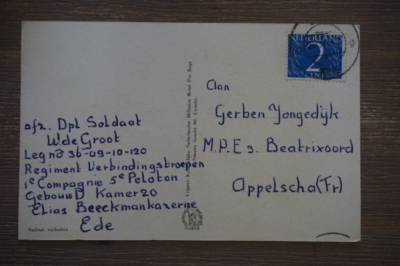 afz. Dpl Soldaat
W de Groot
Legno 36-09-10-120
Regiment Verbindingstroepen
1e Compagnie 5e Peloton
Gebouw D Kamer 20
Elias Beeckmankazerne
Ede
Nadruk verboden
NEDERLAND
2
CENT
Aan
Gerben Jongedijk
M.P.E.s Beatrixoord
Appelscha (Fr)